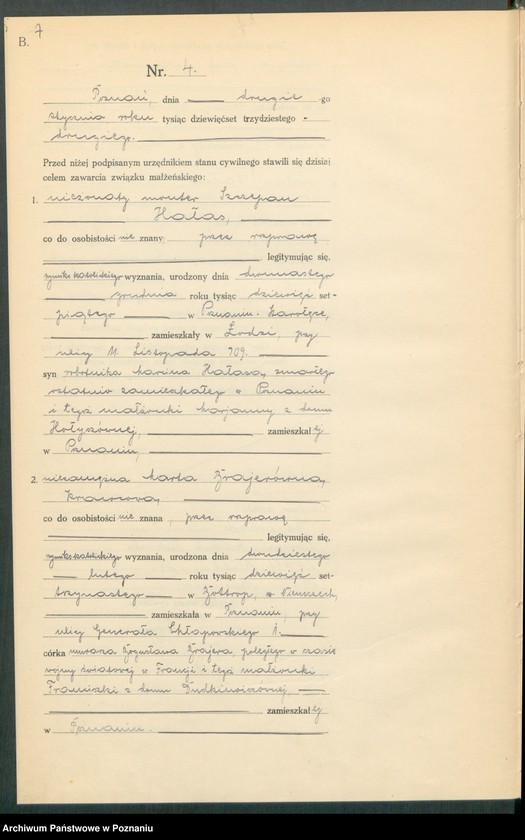 B. 7
Nr. 4.
Poznań, dnia drugie-go
stycznia roku tysiąc dziewięćset trzydziestego -
drugiego.
Przed niżej podpisanym urzędnikiem stanu cywilnego stawili się dzisiaj
celem zawarcia związku małżeńskiego:
1. nieżonaty monter Szczepan
Hałas,
co do osobistości nie znany, przez rozprawę
legitymując się,
rzymsko katolickiego wyznania, urodzony dnia dwunastego
grudnia roku tysiąc dziewięć set-
piątego w Poznaniu.
zamieszkały w Łodzi, przy
ulicy 11. Listopada 109.
syn robotnika Marcina Hałasa, zmarłego
ostatnio zamieszkałego w Poznaniu
i tegoż małżonki Marjanny z domu
zamieszkałej
w Poznaniu,
2. niezamężna Marta Grajerówna,
krawcowa,
co do osobistości nie znana, przez rozprawę
legitymując się,
rzymsko katolickiego wyznania, urodzona dnia dwudziestego
lutego roku tysiąc dziewięć set-
trzynastego w Bottrop, w Niemczech,
zamieszkała w Poznaniu, przy
ulicy Generała Chłapowskiego
córka murarza Grajera, poległego w czasie
wojny światowej w Francji i tegoż małżonki
Franciszki z domu Dudkiewiczównej
zamieszkałej
w Poznaniu.
Archiwum Państwowe w Poznaniu